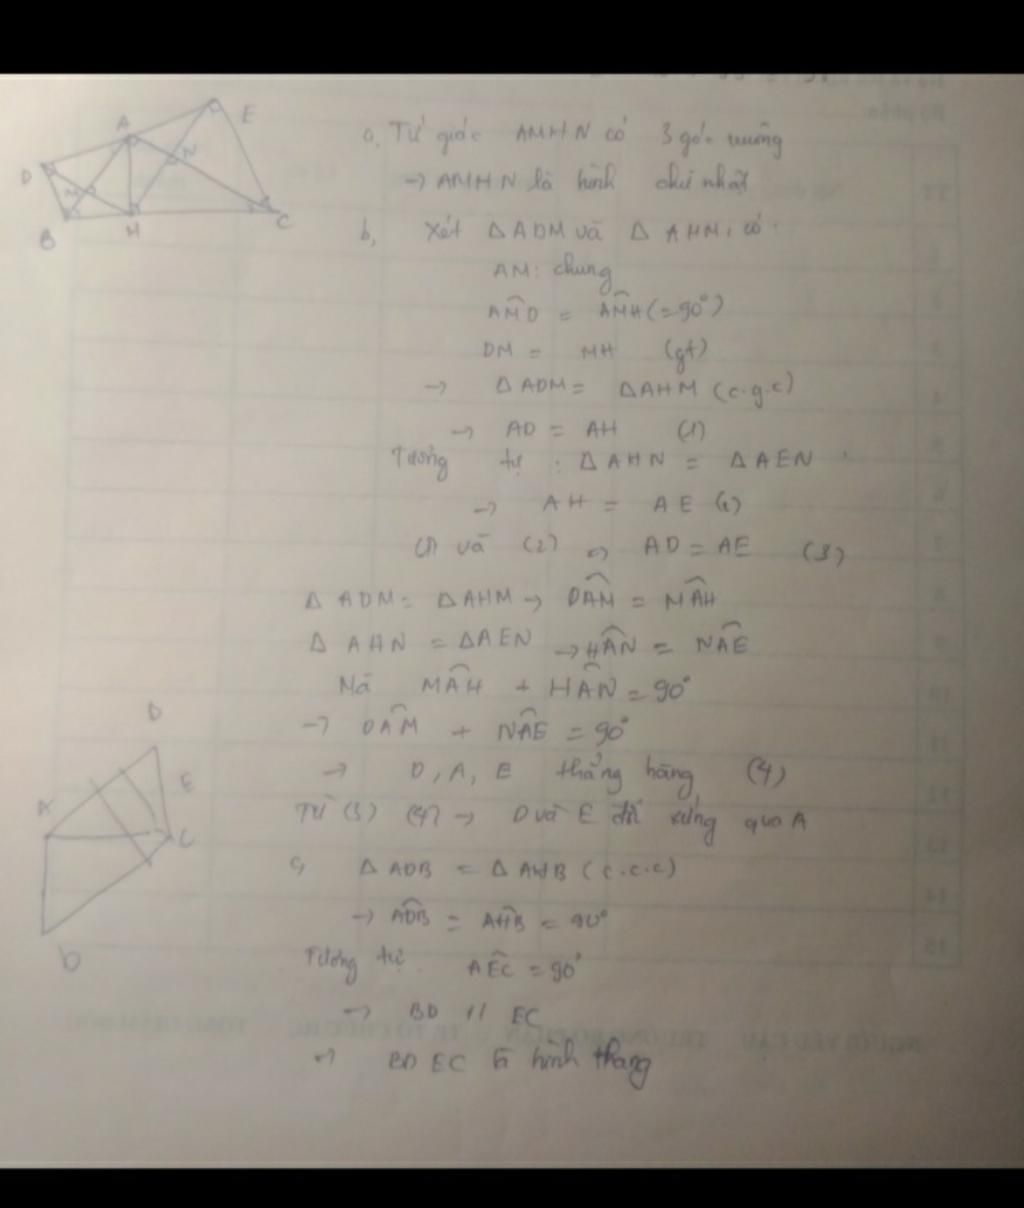 A
E
D
M
N
B
H
C
a, Tứ giác AMHN có 3 góc vuông
→ AMHN là hình chữ nhật
b, Xét ΔADM và ΔAHM, có:
AM: chung
AM̂D = AM̂H (=90°)
DM = MH (gt)
→ ΔADM = ΔAHM (c.g.c)
→ AD = AH (1)
Tương tự: ΔAHN = ΔAEN
→ AH = AE (2)
(1) và (2) → AD = AE (3)
ΔADM = ΔAHM → DÂM = MÂH
ΔAHN = ΔAEN → HÂN = NÂE
Mà MÂH + HÂN = 90°
→ DÂM + NÂE = 90°
→ D, A, E thẳng hàng (4)
Từ (3) (4) → D và E đối xứng qua A
c, ΔADB = ΔAHB (c.c.c)
→ AD̂B = AĤB = 90°
Tương tự AÊC = 90°
→ BD // EC
→ BDEC là hình thang
D
E
A
C
b